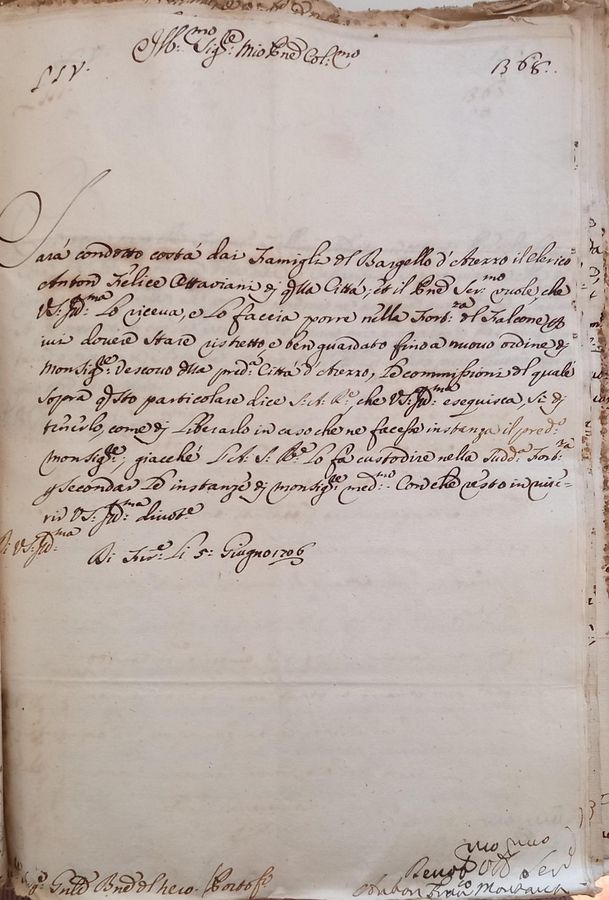 Ill:mo Sig:re Mio Pne Col:mo
LIV.
1368.
Sarà condotto costà dai Famigli del Bargello d'Arezzo il Clerico
Anton Felice Ottaviani di q̃lla Città, et il Pne Ser:mo vuole, che
VS: Ill:ma Lo riceva, e Lo faccia porre nella Fort:za del Falcone p
ivi dovere stare ristretto e ben guardato fino a nuovo ordine di
Monsig:re Vescovo d'lla pred:a Città d'Arezzo, le commissioni del quale
sopra q̃sto particolare dice S: A: R:e, che VS: Ill:ma eseguisca, sì di
tenerlo, come di Liberarlo in caso che ne facesse instanza il pred:o
Monsig:re; giacché L'A: S: R:e Lo fa custodire nella sud:a Fort:za
p secondar le instanze di Monsig:re med:mo Con che resto in rive-
rir VS: Ill:ma divot:e
Di VS: Ill:ma
Di Fir:e Li 5: Giugno 1706